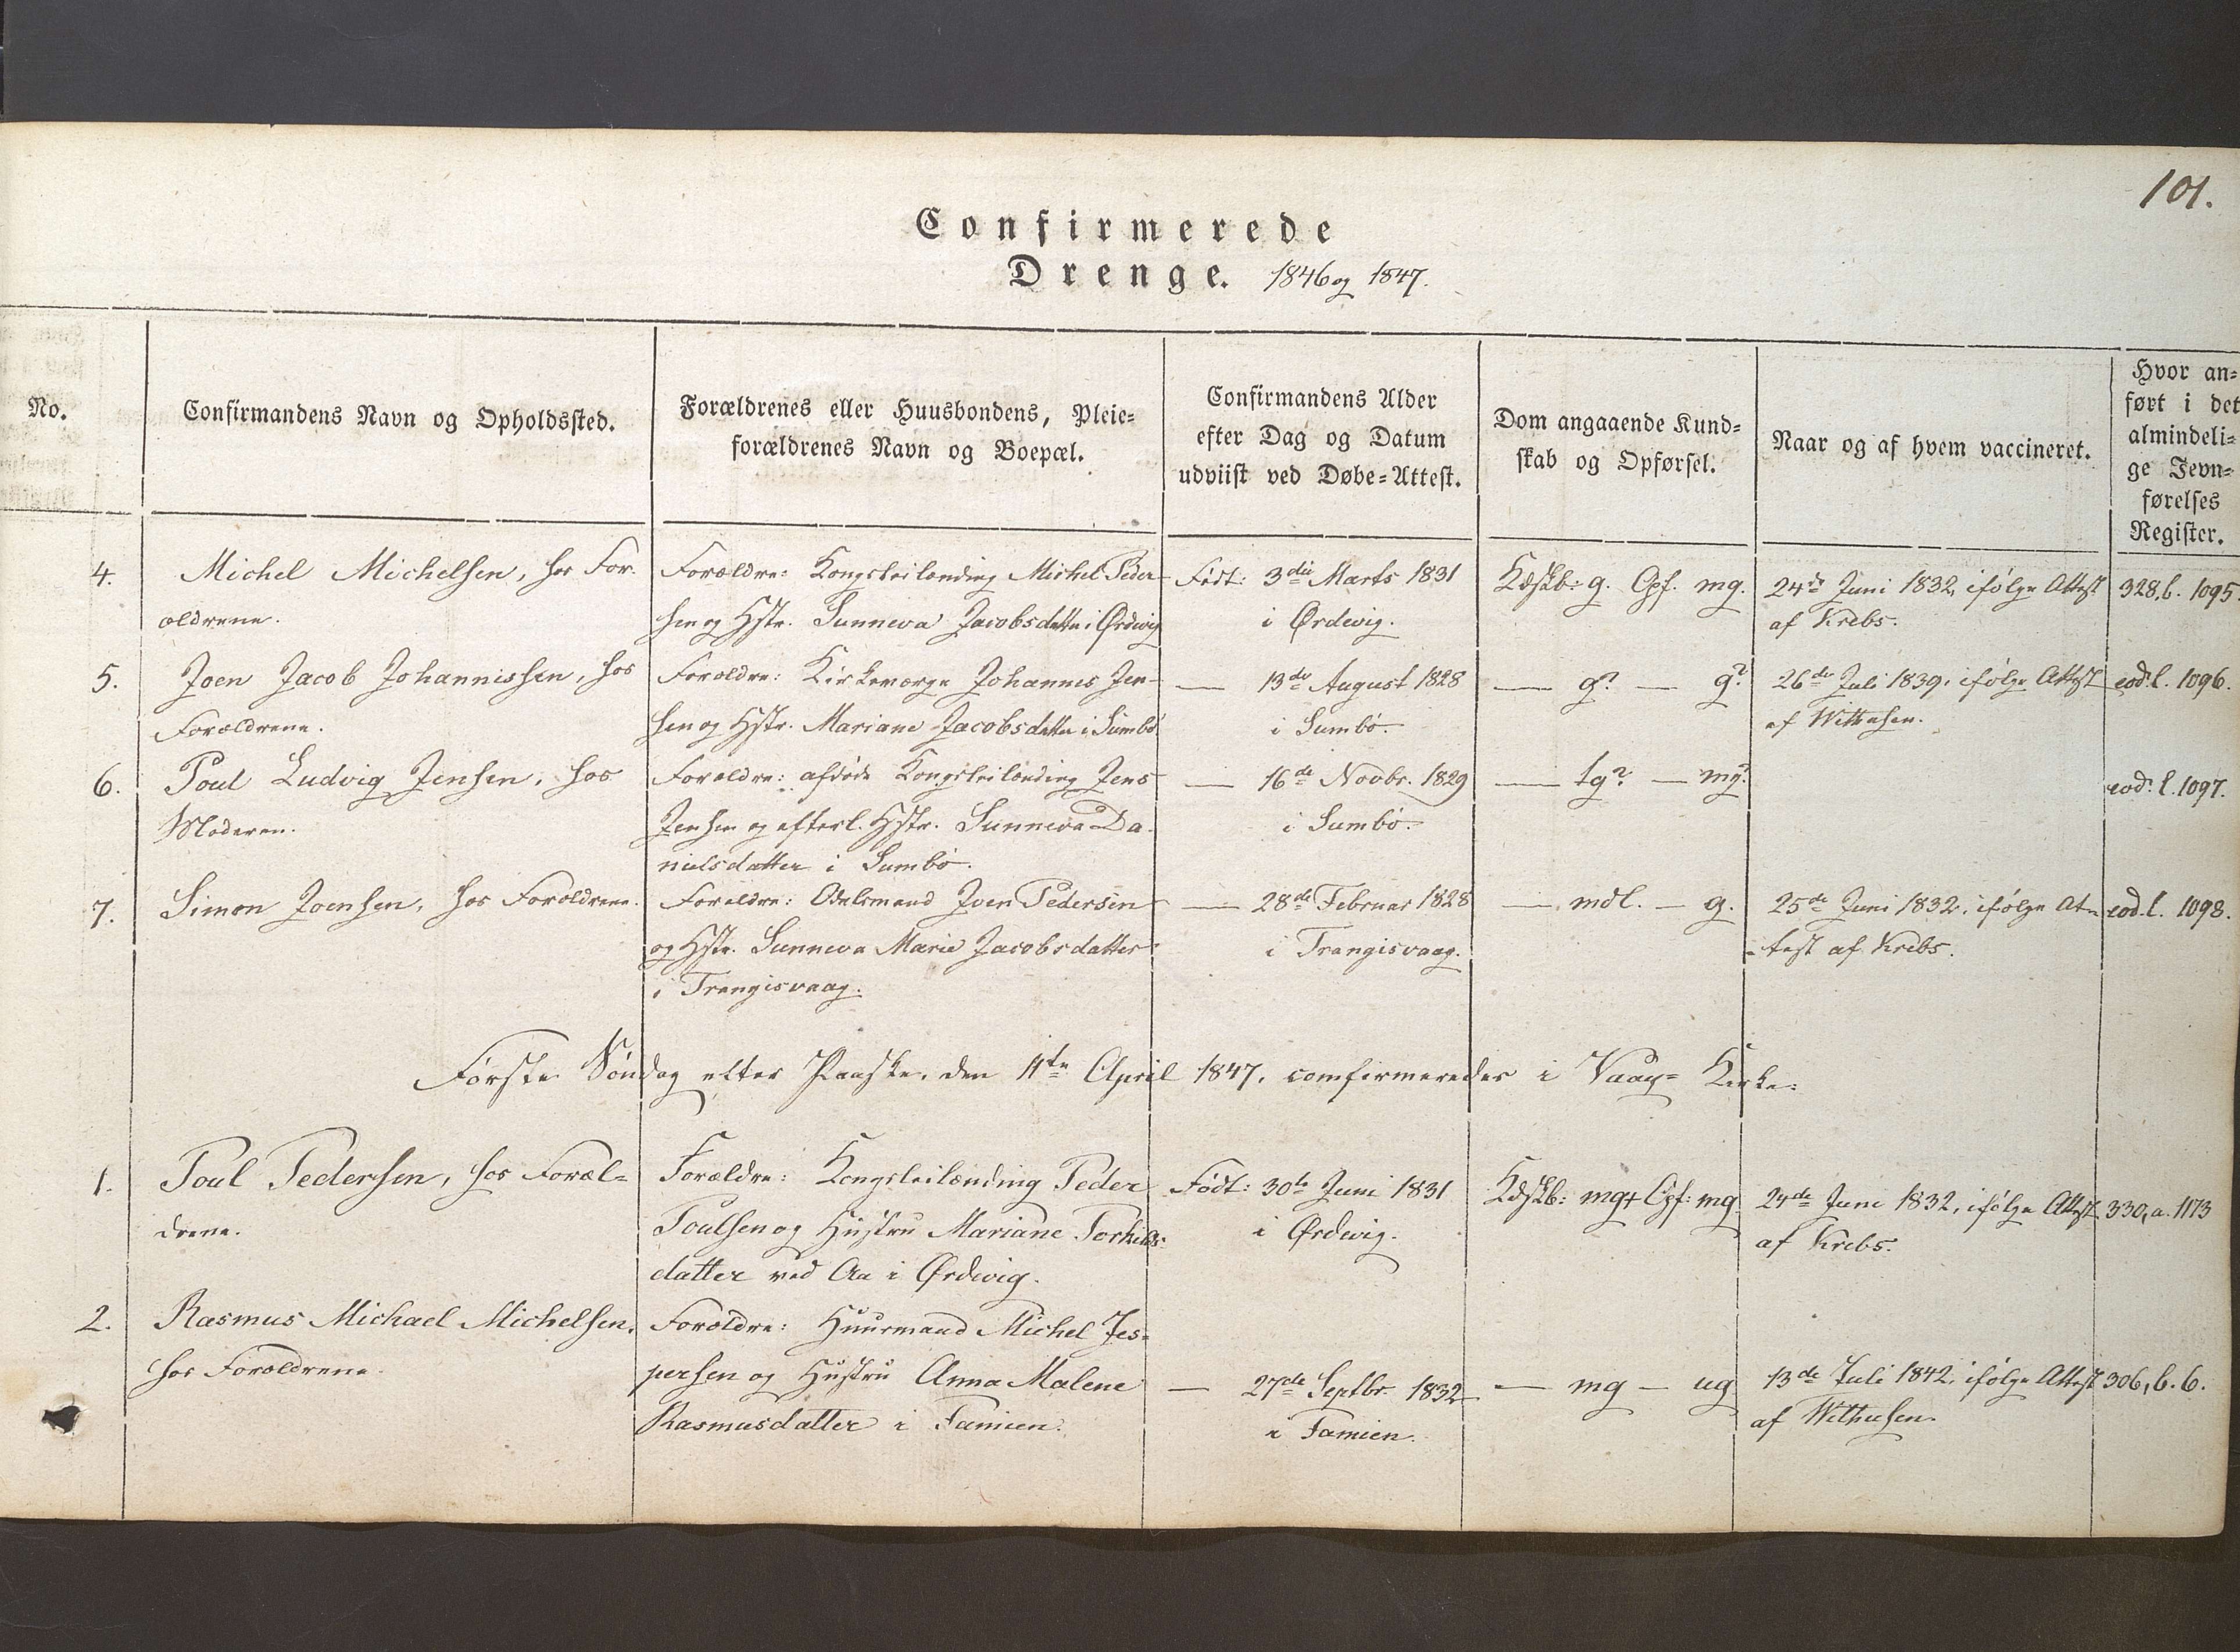 101.
Confirmerede
Drenge. 1846 og 1847.
No.
Confirmandens Navn og Opholdssted.
Forældrenes eller Huusbondens, Pleie=
forældrenes Navn og Boepæl.
Confirmandens Alder
efter Dag og Datum
udviist ved Døbe=Attest.
Dom angaaende Kund=
skab og Opførsel.
Naar og af hvem vaccineret.
Hvor an=
ført i det
almindeli=
ge Jevn=
førelses
Register.
4.
Michel Michelsen, hos For-
ældrene.
Forældre: Kongsleilænding Michel Peder-
sen og Hstr. Sunneva Jacobsdatter i Ørdevig
Født: 3die Marts 1831
i Ørdevig.
Kdskb: g. Opf. mg.
24de Juni 1832, ifølge Attest
af Krebs.
328, b. 1095.
5.
Joen Jacob Johannissen, hos
Forældrene.
Forældre: Kirkeværge Johannes Jen-
sen og Hstr. Mariane Jacobsdatter i Sumbø
— 13de August 1828
i Sumbø.
— g? — g?
26de Juli 1839, ifølge Attest
af Withusen.
eod. l. 1096.
6.
Poul Ludvig Jensen, hos
Moderen.
Forældre: afdøde Kongsleilænding Jens
Jensen og efterl. Hstr. Sunneva Da-
nielsdatter i Sumbø.
— 16de Novbr. 1829
i Sumbø.
— tg? — mg?
eod. l. 1097.
7.
Simon Joensen, hos Forældrene.
Forældre: Odelsmand Joen Pedersen
og Hstr. Sunneva Marie Jacobsdatter
i Trangisvaag.
— 28de Februar 1828
i Trangisvaag.
— mdl. — g.
25de Juni 1832, ifølge At-
test af Krebs.
eod. l. 1098.
Første Søndag efter Paaske, den 11te April 1847, comfirmeredes i Vaag= Kirke:
1.
Poul Pedersen, hos Foræl=
drene.
Forældre: Kongsleilænding Peder
Poulsen og Hustru Mariane Torkilds-
datter ved Aa i Ørdevig.
Født: 30te Juni 1831
i Ørdevig.
Kdskb: mg+ Opf: mg
24de Juni 1832, ifølge Attest
af Krebs.
330, a. 1173
2.
Rasmus Michael Michelsen,
hos Forældrene.
Forældre: Huusmand Michel Jes=
persen og Hustru Anna Malene
Rasmusdatter i Famien.
— 27de Septbr. 1832
i Famien.
— mg — ug
13de Juli 1842, ifølge Attest
af Withusen.
306, b. 6.